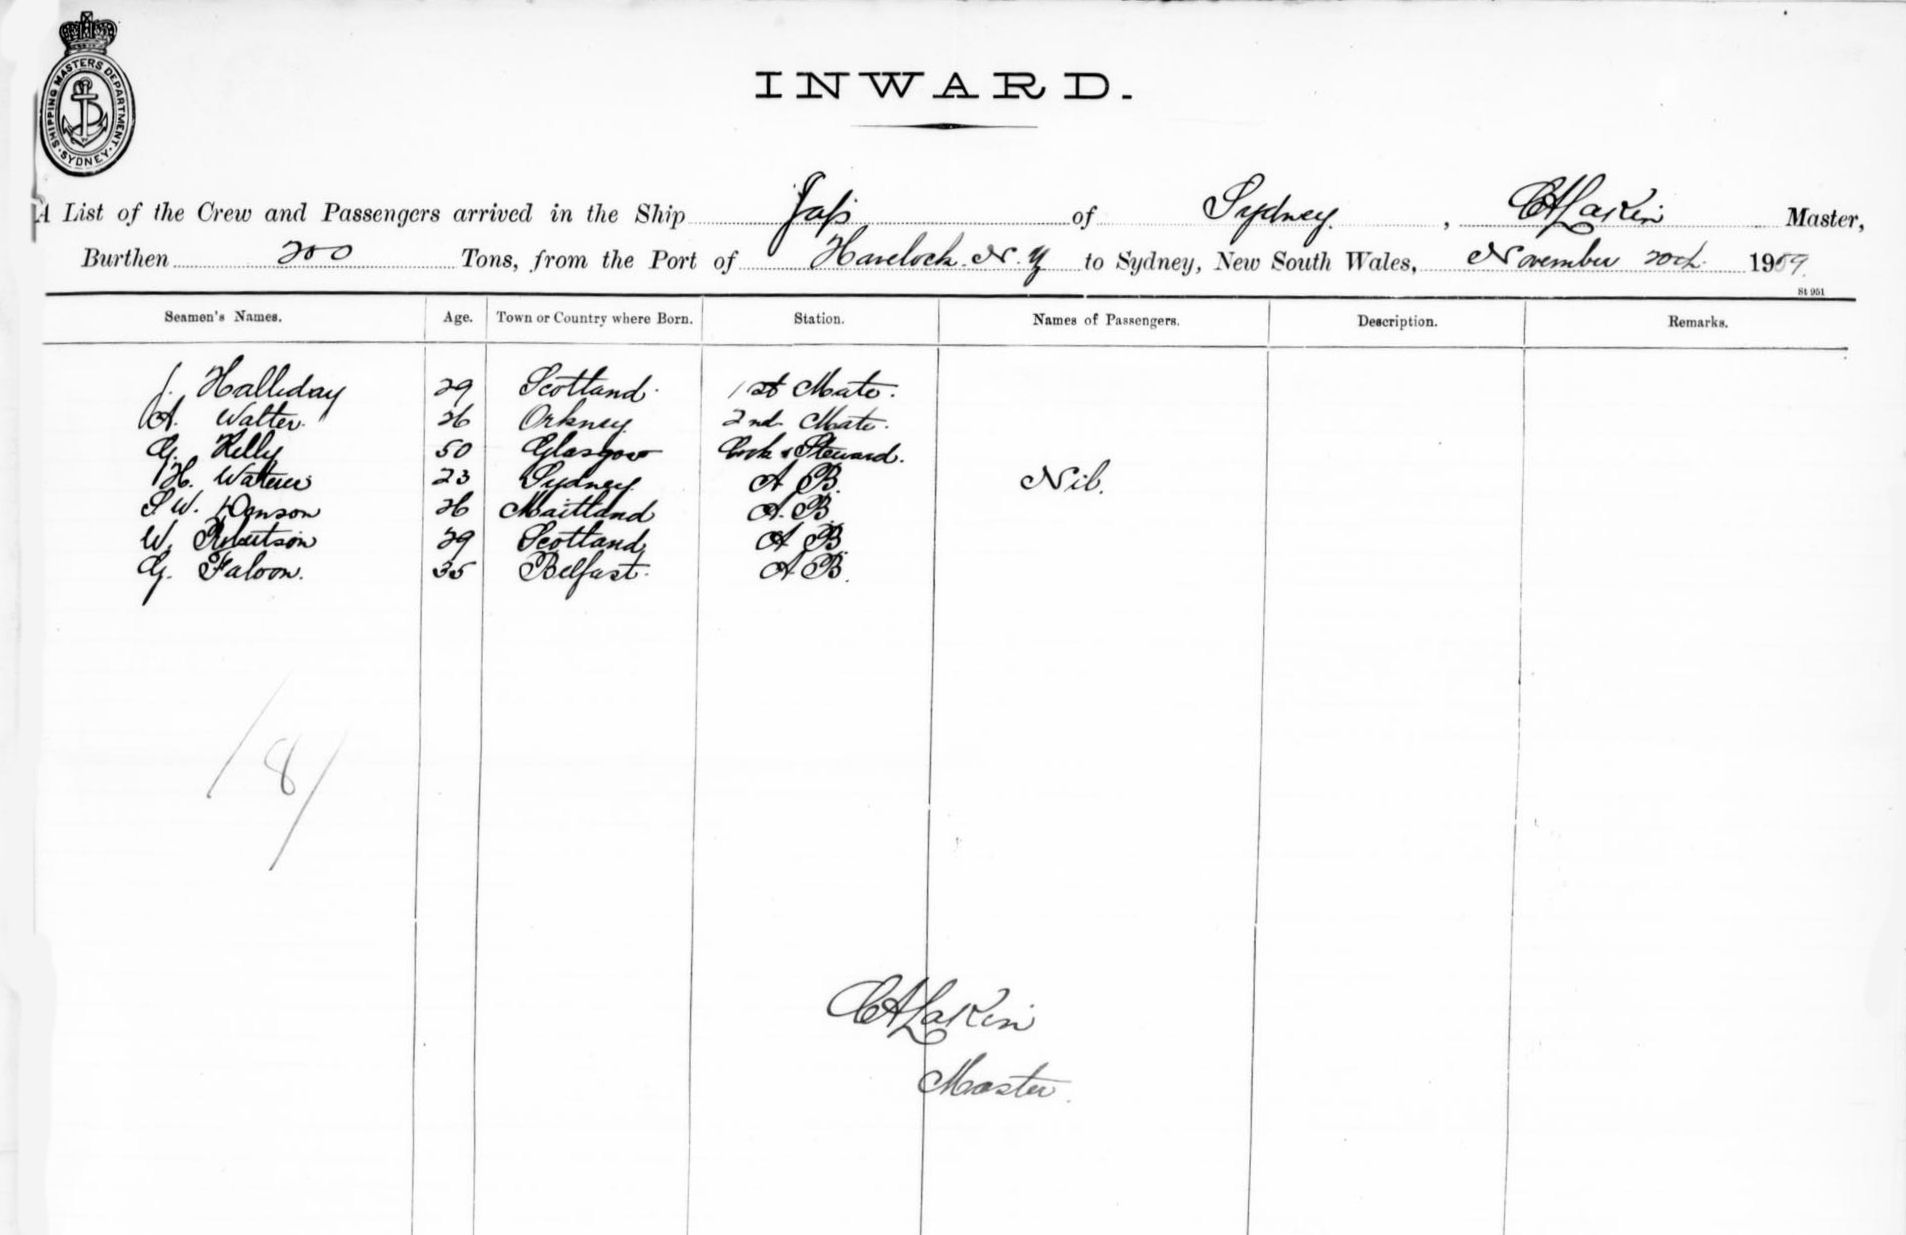 SHIPPING MASTERS DEPARTMENT
SYDNEY
INWARD.
A List of the Crew and Passengers arrived in the Ship of Sydney, CA Larkin Master,
Burthen 200 Tons, from the Port of Havelock N.Z to Sydney, New South Wales, November 20th 1909.
St 951
Seamen's Names. Age. Town or Country where Born. Station. Names of Passengers. Description. Remarks.
J. Halliday 29 Scotland. 1st Mate.
A. Walter. 26 Orkney 2nd Mate.
G. Kelly 50 Glasgow Cook & Steward.
H. 23 Sydney A B. Nil.
S W. 26 Maitland A. B
W. Robertson 29 Scotland A B
G. Faloon. 35 Belfast. A B.
/8/
CA Larkin
Master.